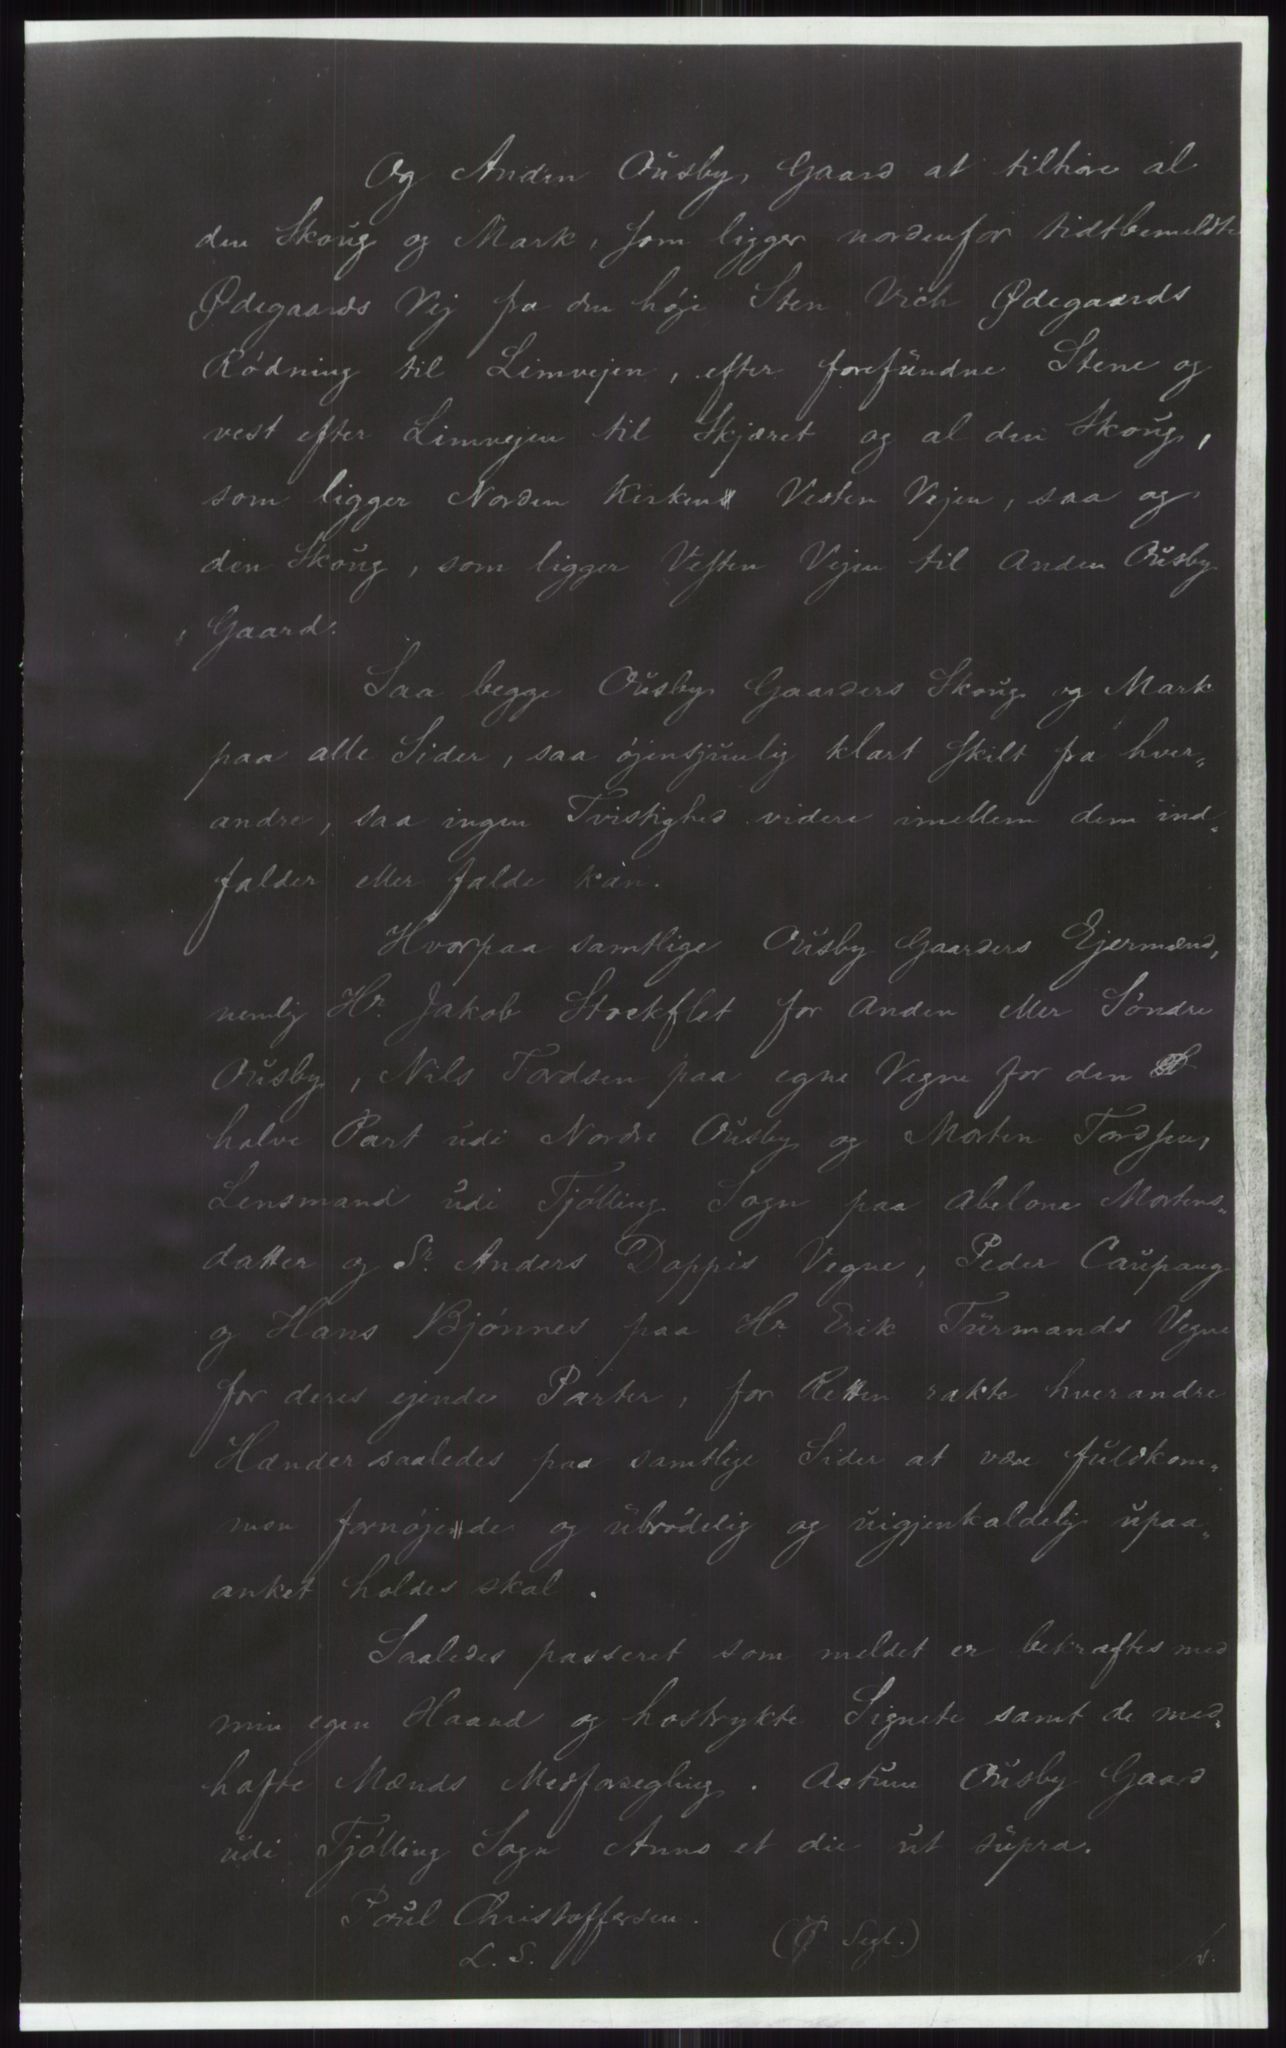 Og Anden Ousby Gaard at tilhöre al
den Skoug og Mark, som ligger nordenfor tidtbemeldte
Ødegaards Vej fra den høje Sten Vich Ødegaards
Rödning til Limvejen, efter forefundne Stene og
vest efter Limvejen til Skjæret og al den Skoug,
som ligger Norden Kirken Vesten Vejen, saa og
den Skoug, som ligger Vesten Vejen til Anden Ousby
Gaard.
Saa begge Ousby Gaarders Skoug og Mark
paa alle Sider, saa øjensjunlig klart skilt fra hver„
andre, saa ingen Tvistighed videre imellem dem ind„
falder eller falde kan.
Hvorpaa samtlige Ousby Gaarders Ejermænd,
nemlig Hr. Jakob Stockflet for Anden eller Söndre
Ousby, Nils Tordsen paa egne Vegne for den
halve Part udi Nordre Ousby og Morten Tordsen,
Lensmand udi Tjölling Sogn paa Abelone Mortens„
datter og Sr. Anders Doppis Vegne, Peder Caupang
og Hans Bjønnes paa Hr. Erik Turmands Vegne
for deres ejende Parter, for Retten rakte hverandre
Hænder saaledes paa samtlige Sider at være fuldkom„
men fornøjede og ubrödelig og uigjenkaldelig upaa„
anket holdes skal.
Saaledes passeret som meldet er bekræftes med
min egen Haand og hostrykte Signete samt de med„
hafte Mænds Medforsegling. Actum Ousby Gaard
udi Tjölling Sogn Anno et die ut supra.
Poul Christoffersen.
L. S. ( Segl.)